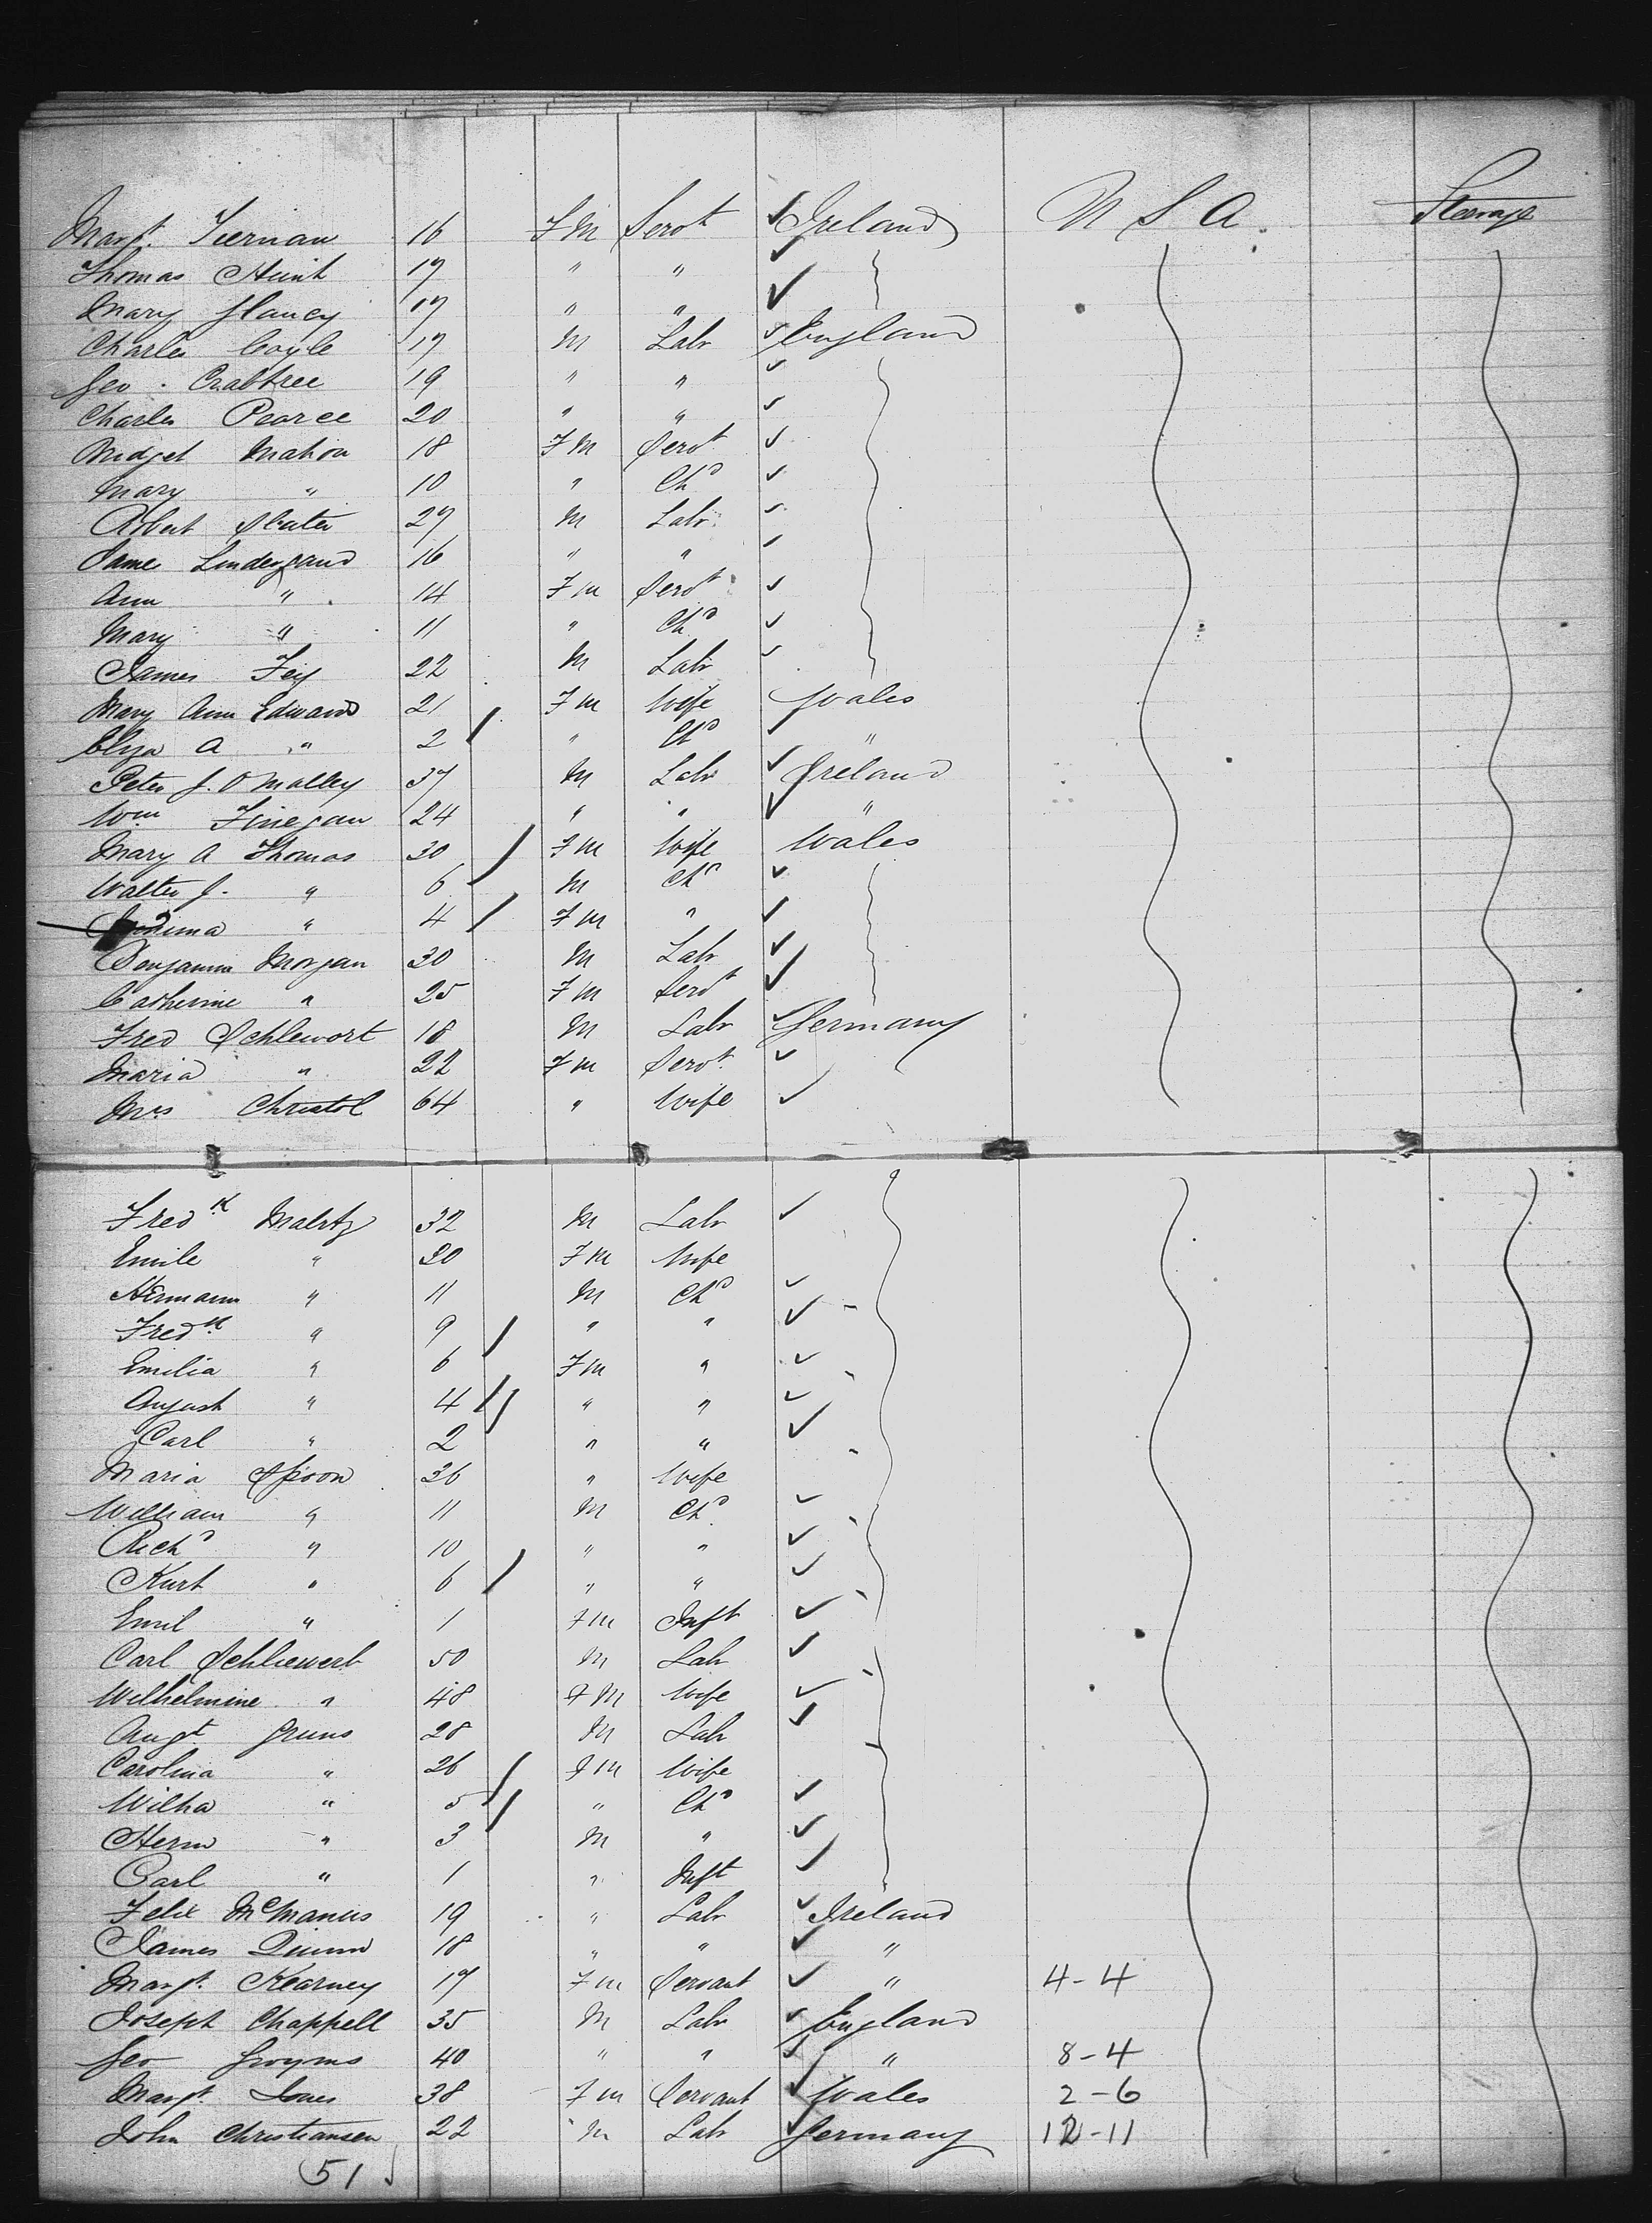 Margt. Tiernan 16 Fm Servt Ireland U S A Steerage
Thomas Hunt 17 " "
Mary Clancy 17 " "
Charles Coyle 19 M Labr England
Geo. Crabtree 19 " "
Charles Pearce 20 " "
Bridget Mahon 18 Fm Servt
Mary " 10 " Chd
Robert Slater 27 M Labr
Same 16 " "
Ann " 14 Fm Servt
Mary " 11 " Chd
James Fey 22 M Labr
Mary Ann Edwards 21 Fm Wife Wales
Eliza A " 2 " Chd "
Peter J. O'Malley 37 M Labr Ireland
Wm Finegan 24 " " "
Mary A Thomas 30 Fm Wife Wales
Walter J. " 6 M Chd
" 4 Fm "
Benjamin Morgan 30 M Labr
Catherine " 25 Fm Servt
Fred Schlewort 18 M Labr Germany
Maria " 22 Fm Servt.
Mrs Christol 64 " Wife
Fredk Maltz 32 M Labr
Emile " 30 Fm Wife
Hermann " 11 M Chd
Fredk " 9 " "
Emilia " 6 Fm "
August " 4 " "
Carl " 2 " "
Maria Spoon 36 " Wife
William " 11 M Chd
Richd " 10 " "
Kurt " 6 " "
Emil " 1 Fm Inft
Carl Schliewert 50 M Labr
Wilhelmine " 48 Fm Wife
Augt Gruns 28 M Labr
Carolina " 26 Fm Wife
Wilha " 5 " Chd
Herm " 3 M "
Carl " 1 " Inft
Felix McManus 19 " Labr Ireland
James Quinn 18 " " "
Margt. Kearney 17 Fm Servant " 4-4
Joseph Chappell 35 M Labr England
Geo 40 " " " 8-4
Margt. Jones 38 Fm Servant Wales 2-6
John Christiansen 22 M Labr Germany 12-11
51